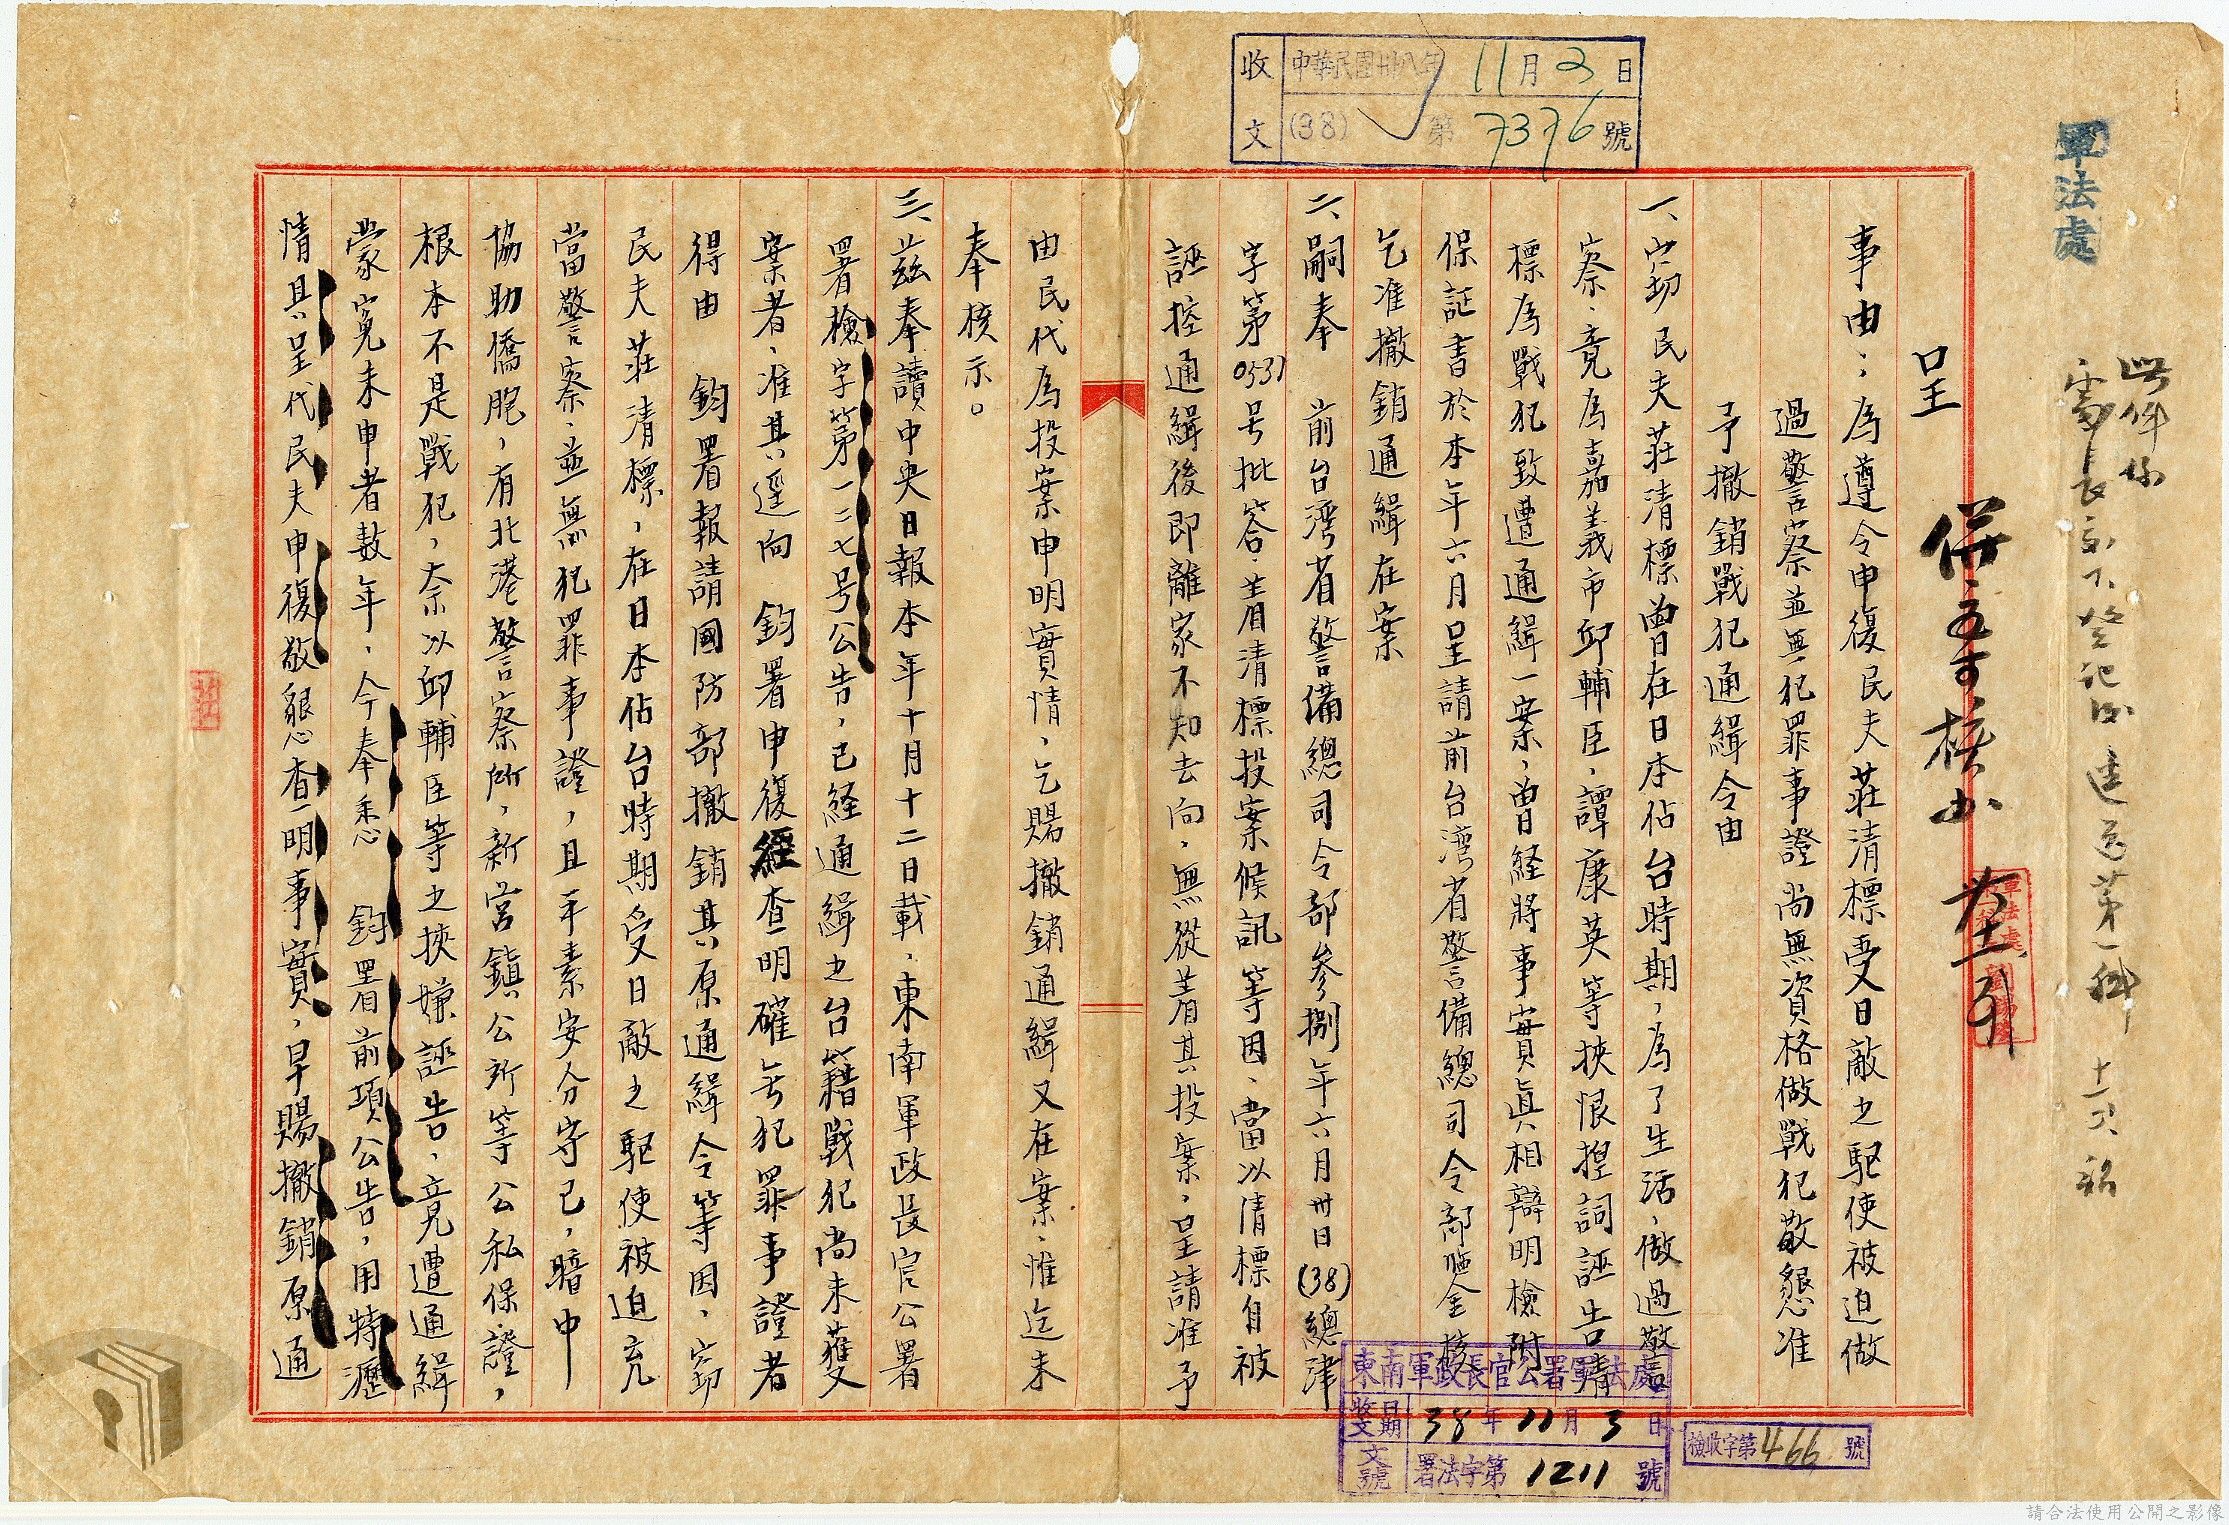 收文
中華民國卅八年11月2日
(38)第7376號
軍法處
呈
事由：為遵令申復民夫莊清標受日敵之駆使被迫做
過警察並無犯罪事證尚無資格做戰犯敬懇准
予撤銷戰犯通緝令由
一、窃民夫莊清標曾在日本佔台時期，為了生活，做過警
察、竟為嘉義市邱輔臣、譚康英等挾恨揑詞誣告清
標為戰犯致遭通緝一案，曾経將事實眞相辯明檢附
保証書於本年六月呈請前台湾省警備總司令部鑒核
乞准撤銷通緝在案
二、嗣奉 前台湾省警備總司令部參捌年六月卅日(38)總津
字第0531号批答、着清標投案候訊等因、當以清標自被
誣控通緝後即離家不知去向，無從着其投案，呈請准予
由民代為投案申明實情，乞賜撤銷通緝又在案、惟迄未
奉核示。
三、茲奉讀中央日報本年十月十二日載、東南軍政長官公署
署檢字第一二七号公告，已経通緝之台籍戰犯尚未獲
案者、准其逕向 鈞署申復經查明確無犯罪事證者
得由 鈞署報請國防部撤銷其原通緝令等因、窃
民夫莊清標，在日本佔台時期受日敵之駆使被迫充
當警察、並無犯罪事證，且平素安分守己，暗中
協助僑胞，有北港警察所，新営鎮公所等公私保證，
根本不是戰犯，奈以邱輔臣等之挾嫌誣告，竟遭通緝
蒙寃未申者数年、今奉悉 鈞署前項公告，用特瀝
情具呈代民夫申復敬懇查明事實，早賜撤銷原通
東南軍政長官公署軍法處
收文日期 38年11月3日
文號 署法字第1211號
檢收字第466號
請合法使用公開之影像